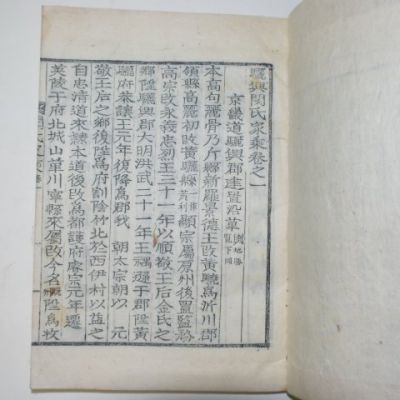 驪興閔氏家乘卷之一
京畿道驪興郡建置沿革 輿地勝覽下同
本高句麗骨乃斤縣新羅景德王改黃驍爲沂川郡
領縣高麗初改黃驪縣 顯宗屬原州後置監務
高宗改永義忠烈王三十一年以順敬王后金氏之
鄕陞驪興郡大明洪武二十一年王禑遜于郡陞黃
驪府恭讓王元年復降爲郡我 朝太宗朝以 元
敬王后之鄕復陞爲府割陰竹北於西伊村以益之
自忠淸道來隷本道後改爲都護府睿宗元年遷
英陵于府北城山革川寧縣來屬改今名 陞爲牧